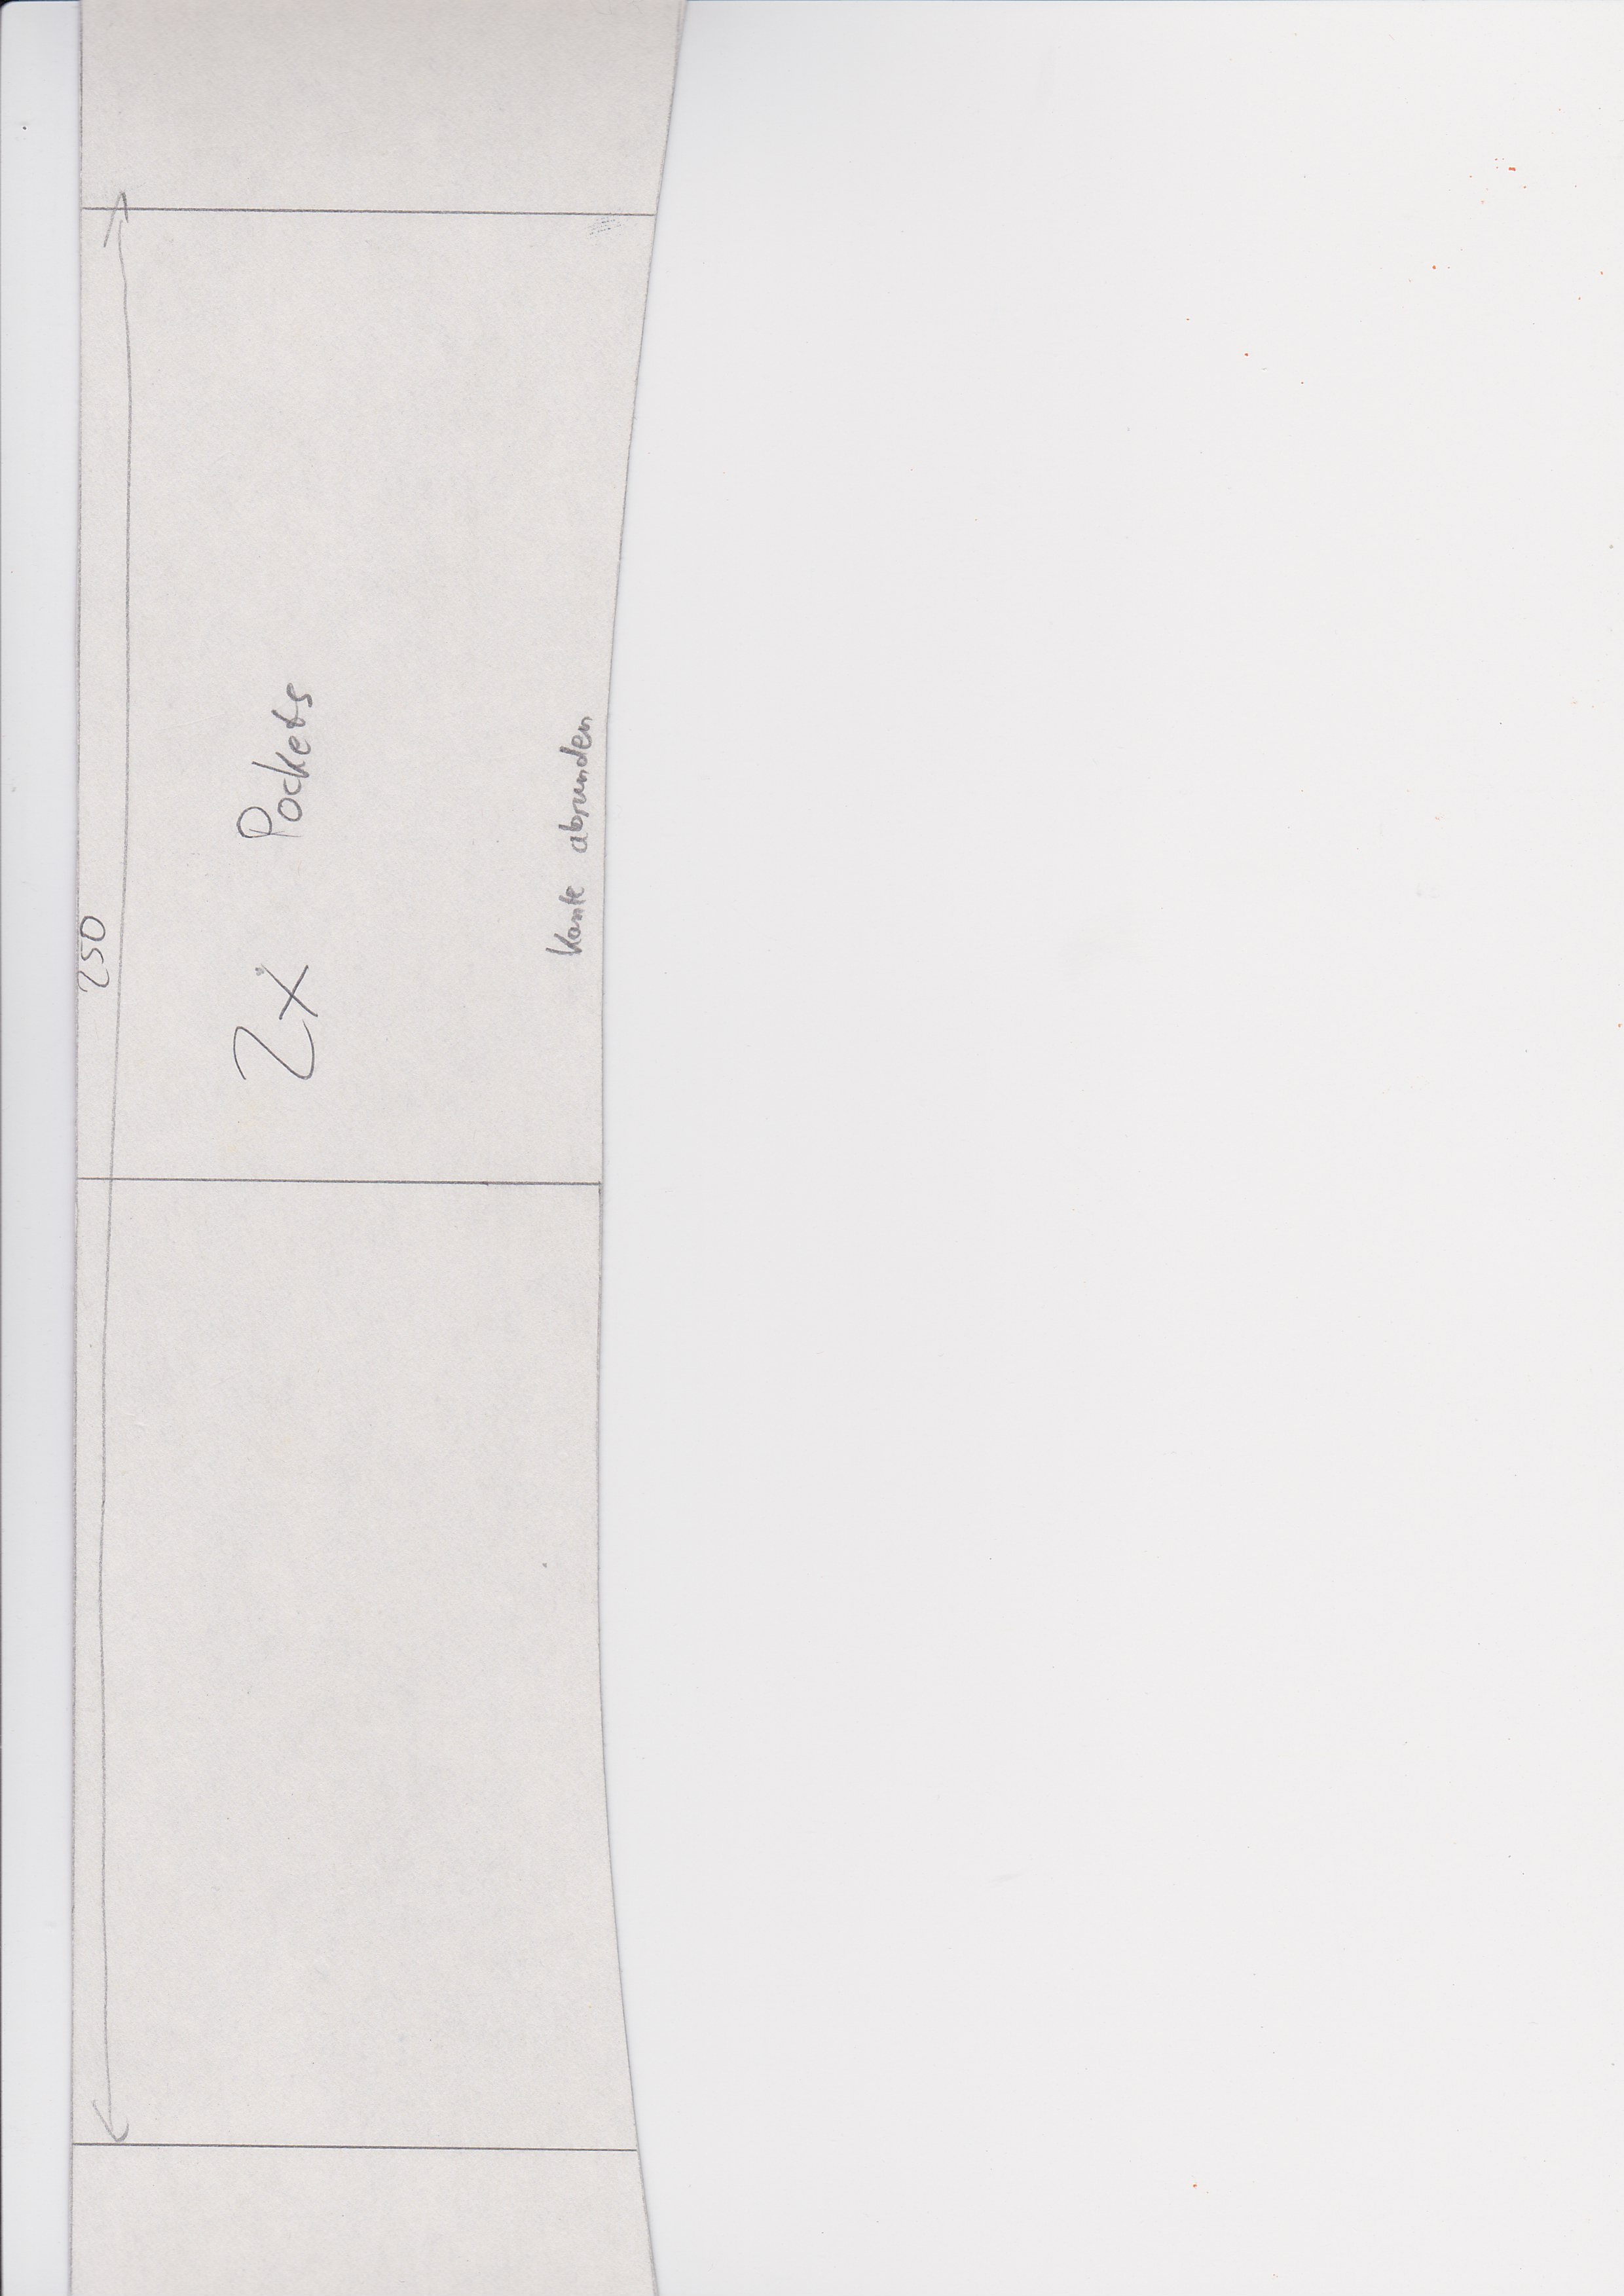 250
2x Pockets
Kante abrunden